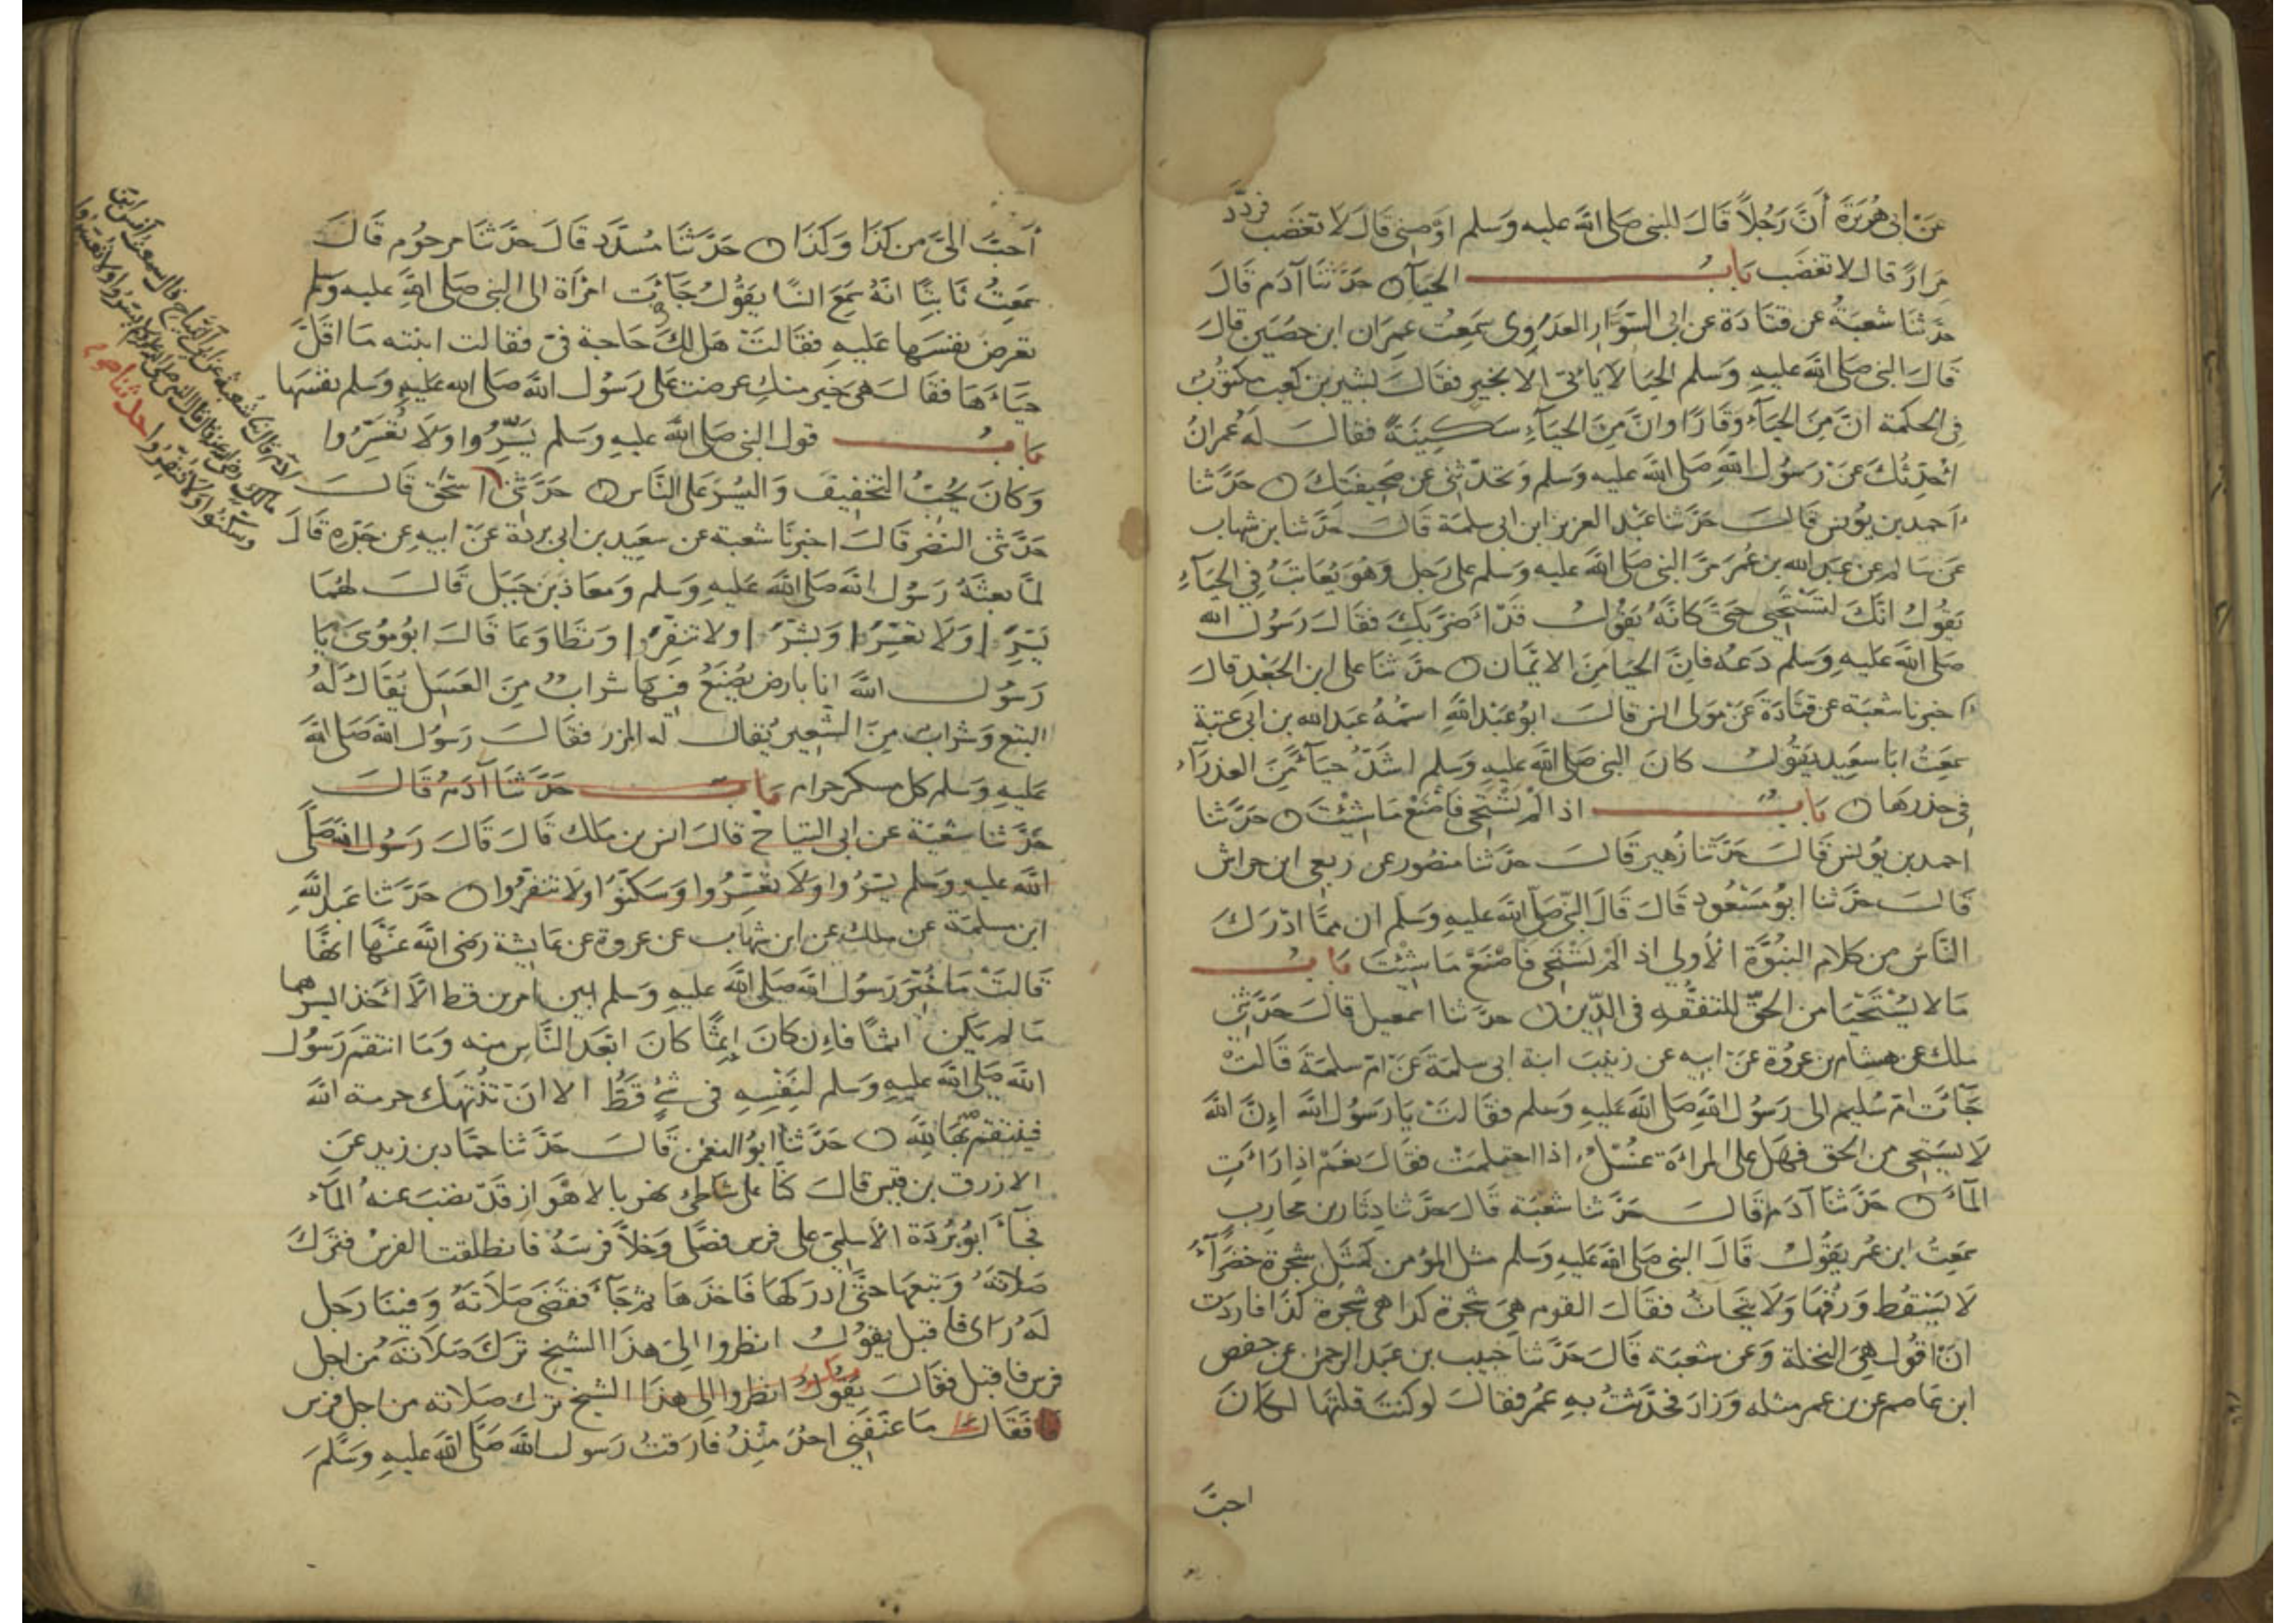 عن ابى هُرَيْرَةَ أَنَّ رَجُلاً قَالَ للنبى صَلى الله عليه وَسلم اوْصِنى قَالَ لا تغضَب فردَّد
مِرَارًا قال لا تغضَب بَابُ الحيَآءِ حَدَّثَنَا آدَم قَالَ
حدَّثَنَا شعبَةُ عن قتادَة عن ابى السَّوَّار العدَوِى سَمِعتُ عمرَان ابن حصَين قالَ
قَالَ النبى صَلى الله عليهِ وَسلم الحيَا لا يَاتى الا بخيرٍ فقَالَ بُشَير بن كعب مكتُوبٌ
فى الحكمة انَّ مِنَ الحيَآءِ وَقَارًا وانَّ مِنَ الحيَآءِ سَكِينَةً فقالَ لَهُ عُمرانُ
احَدِّثُكَ عَنْ رَسُول اللهِ صَلى الله عليه وسلم وَتحدّثنى عن صَحِيفَتِكَ حَدَّثنا
احَمد بن يُونس قَالَ حَدَّثنا عَبْد العزيز ابن ابى سلمَة قَالَ حَدَّثنا بن شهاب
عَن سَالم عن عَبد الله بن عُمَر مَرَّ النبى صَلى الله عليه وَسلم على رَجل وَهوَ يُعَاتبُ فِى الحيَآءِ
يَقُولُ انَّكَ لتَسْتَحْيى حتىَّ كَانَّهُ يَقُولُ قَدْ اضرَّ بكَ فقَالَ رَسُول الله
صَلى الله عَليهِ وَسلم دَعهُ فانَّ الحيَا مِنَ الايمَان حدَّثنَا على ابن الجَعْد قالَ
اخبرنا شعبَة عن قتَادَة عَنْ مَولى انس قالَ ابُو عَبْد اللهِ اسمُهُ عَبد الله بن ابى عتبَة
سمِعتُ ابَا سَعِيد يَقُولُ كانَ النبى صَلى الله عليهِ وَسلم اشَدّ حيَآءً مِنَ العذرَآءِ
فى خدرهَا بَابُ اذا لمْ تسْتَحى فَاصْنَعْ مَا شِئْتَ حَدَّثنا
احمد بن يُونس قَالَ حَدَّثنا زُهَير قَالَ حدَّثنا منصُور عن ربعى ابن حراش
قَالَ حَدَّثنا ابُو مَسْعُود قَالَ قَالَ النبّى صَلّى الله عليهِ وَسلّم ان ممَّا ادْرَكَ
النَّاسُ من كلام النبُوَّة الأولى اذا لمْ تَسْتَحى فَاصْنَعْ مَا شِئْتَ بَابُ
مَا لا يُسْتَحْيَا من الحقِّ للتفقُّهِ فى الدِّين حدَّثنا اسمعيل قالَ حَدَّثنى
ملك عن هِشام بن عروُة عنْ ابيه عن زينبَ ابنة ابى سلمَة عَنْ امّ سلمَةَ قَالَتْ
جَآءَت امّ سُليم الى رَسُول اللهِ صَلى الله عَليهِ وَسلم فقَالَتْ يَا رَسُول الله إِنَّ الله
لَا يسَتحى من الحق فهَل على المرْاَة غسْلٌ اذا احتلمَتْ فقَالَ نعَمْ اذا رَاَتِ
المآءَ حَدَّثَنا آدَم قَالَ حدَّثنا شعْبَة قَالَ حَدَّثنا دِثار بن محارب
سمِعتُ ابن عمر يَقُولُ قَالَ النبى صَلى الله عَليهِ وسلم مثل المؤمن كمثَل شَجرة خضرَآءَ
لَا يَسْقُط وَرَقُهَا وَلَا يتَحَاتُّ فقَالَ القوم هىَ شَجرة كذا هى شَجرَة كذَا فاردَت
انْ اقُول هىَ النخلة وَعن شعبَة قَالَ حَدَّثنا خُبيب بن عبَد الرحمن عن حفص
ابن عَاصم عن بن عمر مثله وَزادَ فحدَّثتُ بهِ عُمر فقالَ لو كنتَ قلتهَا لكَانَ
احبَّ
أحَبَّ الىَّ من كَذَا وَكَذَا حَدَّثنَا مُسَدَّد قَالَ حَدَّثنَا مرحُوم قَالَ
سمَعِتُ ثَابتًا انَّهُ سَمِعَ انسًا يَقُولُ جَآءَت امْرَاَة الى النبى صَلى اللهِ عليه وَسلم
تعرِضُ نفسَها عَليهِ فقَالَتْ هَل لكَ حَاجة فىَّ فقالت ابنته مَا اقَلَّ
حيَاءَهَا فقَالَ هى خير منكِ عرضت على رَسُول اللهَ صَلى الله عَليهِ وَسلم نفسَهَا
بَابُ قول النبى صَلى اللهَ عليهِ وَسلم يَسِّرُوا وَلَا تُعَسِّرُوا
وَكَانَ يُحبُّ التخفِيفَ وَاليُسْرَ عَلى النَّاسِ حَدَّثنى اسحَق قَالَ
حَدَّثنى النضر قَالَ اخبرنَا شعبة عن سعَيِد بن ابى بردَة عَنْ ابيهِ عن جَدّه قَالَ
لمَّا بعثَهُ رَسُول الله صَلى الله عَليهِ وسلم وَمعَاذ بن جَبَل قَالَ لهُمَا
يَسِّرَا وَلَا تعَسِّرَا وَبَشِّرَا وَلا تنفِّرَا وَتطَاوَعَا قَالَ ابُو مُوسَى يَا
رَسُول اللهَ انا بارض يُصْنَعُ فيهَا شرابٌ مِنَ العَسَل يُقَالُ لَهُ
البتع وَشرابٌ مِنَ الشَعِير يُقالُ له المزر فقَالَ رَسُول الله صَلى الله
عَليهِ وَسلم كل مسكر حرام بَابُ حَدَّثنَا آدَم قَالَ
حَدَّثنا شعْبَة عن ابى التياح قالَ انس بن مَلك قَالَ قَالَ رَسُول الله صَلَّى
الله عليهِ وَسلم يسِّرُوا وَلَا تعَسِّرُوا وَسَكّنوُا وَلَا تنفرُوا حَدَّثنا عَبد اللهِ
ابن مسلمَة عن ملك عن ابن شهَاب عن عروة عن عَايشة رَضى الله عَنْهَا انهَّا
قَالَتْ مَا خُيِّرَ رَسُول الله صَلى الله عليهِ وَسلم بَين امرين قط الَّا اخَذ ايسرهما
مَا لم يَكن اثمًا فإن كَانَ إِثمًا كَانَ ابْعَد النَّاسِ منه وَمَا انتقم رَسُول
الله صَلى الله عليهِ وَسلم لنَفْسِهِ فى شىءٍ قَطُّ الا انْ تُنْتَهك حرمة الله
فينتقم بهَا للهِ حَدَّثنا ابُو النعمن قَالَ حَدَّثنا حمّاد بن زيد عَن
الازرق بن قيس قالَ كنَّا عَلى شَاطىء نهر بالاهْوَاز قَدْ نضبَ عنهُ المآء
فجَآءَ ابُو بُرْدَة الأسلمَى على فرس فصَلَّى وَخلَّا فرسَهُ فانطلقت الفرس فتَركَ
صَلَاتَهُ وَتبَعهَا حَتَّى ادرَكهَا فَاخذَهَا ثم جَآءَ فقَضَى صَلَاتَهُ وَفينَا رَجل
لَهُ رَاى فاقبل يقوُلُ انظروا الىَ هذَا الشيخ ترَكَ صَلَاتهُ من اجل
فرس فاقبل فقَالَ يَقُولُ انظروا الى هذا الشيخ ترك صَلاته من اجل فرس
فقَالَ مَا عَنّفَنى احدٌ منذُ فارَقتُ رَسول الله صَلَّى الله عليهِ وَسَلَّمَ
آدم قال ثنا شُعبةُ عن ابى التَّيَّاح قال سمعت أنس ابن
وسَكِّنُوا وَلَا تُنَفِّرُوا حدثنا